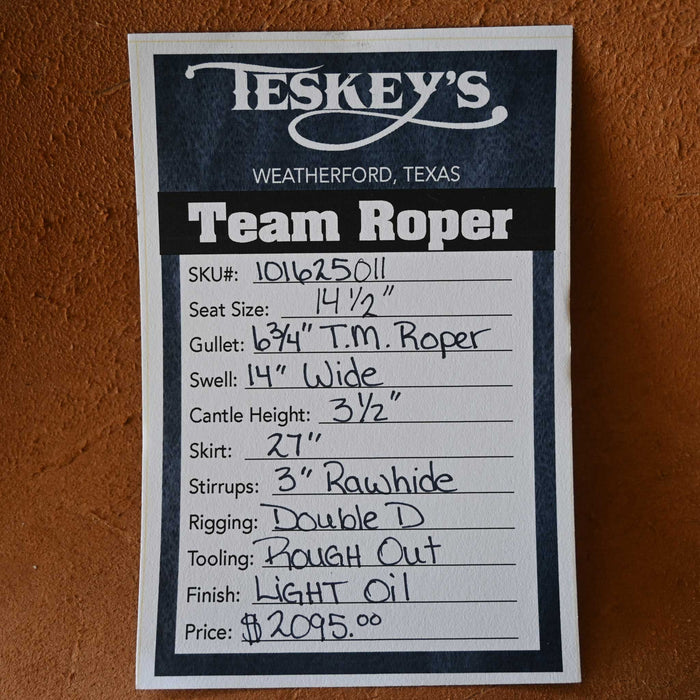 TESKEY'S
WEATHERFORD, TEXAS
Team Roper
SKU#: 101625011
Seat Size: 14 1/2"
Gullet: 6 3/4" T.M. Roper
Swell: 14" Wide
Cantle Height: 3 1/2"
Skirt: 27"
Stirrups: 3" Rawhide
Rigging: Double D
Tooling: ROUGH Out
Finish: LIGHT Oil
Price: $2095.00